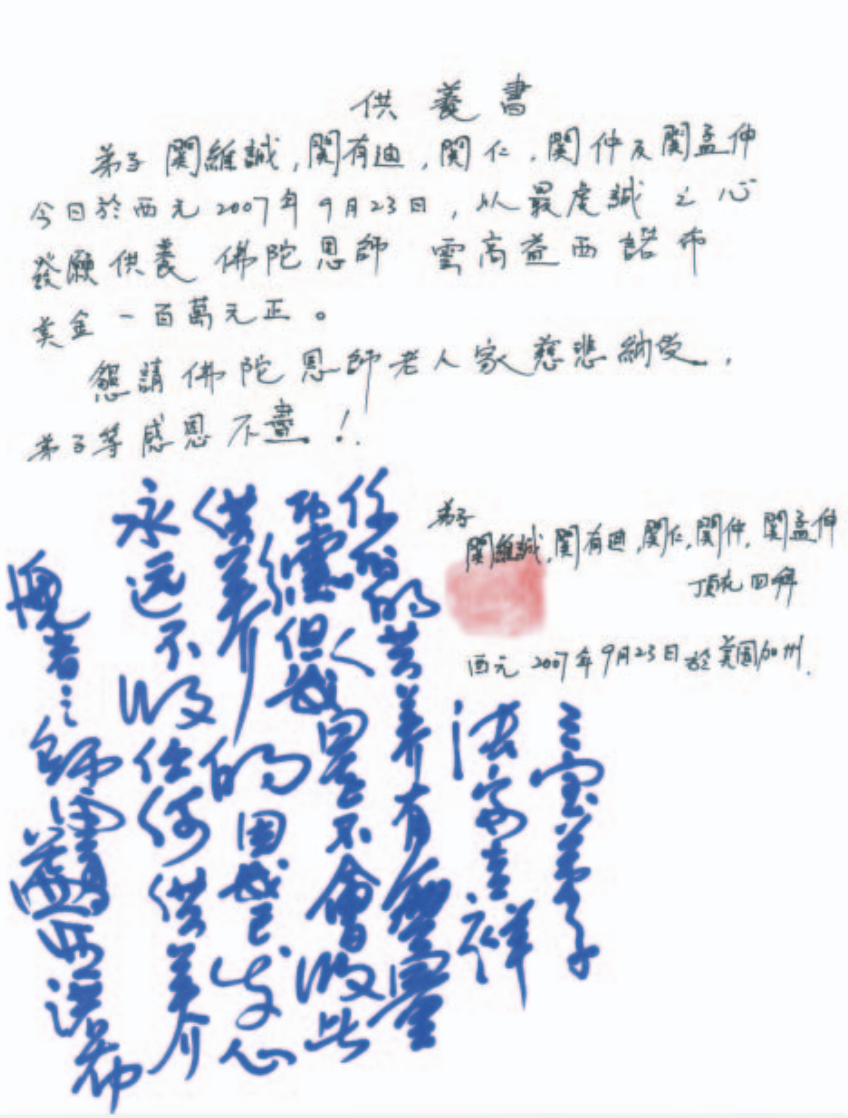 供養書
弟子關維誠,關有迪,關仁,關仲及關孟伸
今日於西元2007年9月23日,以最虔誠之心
發願供養 佛陀恩師 雲高益西諾布
美金一百萬元正。
懇請佛陀恩師老人家慈悲納受,
弟子等感恩不盡!
弟子
關維誠,關有迪,關仁,關仲,關孟伸
頂禮回拜
西元2007年9月23日於美國加州.
三宝弟子
法安吉祥
任何的供养有無量
功德但我是不會收此
供养的因我已发心
永远不收任何供养
愧者之師雲高益西诺布